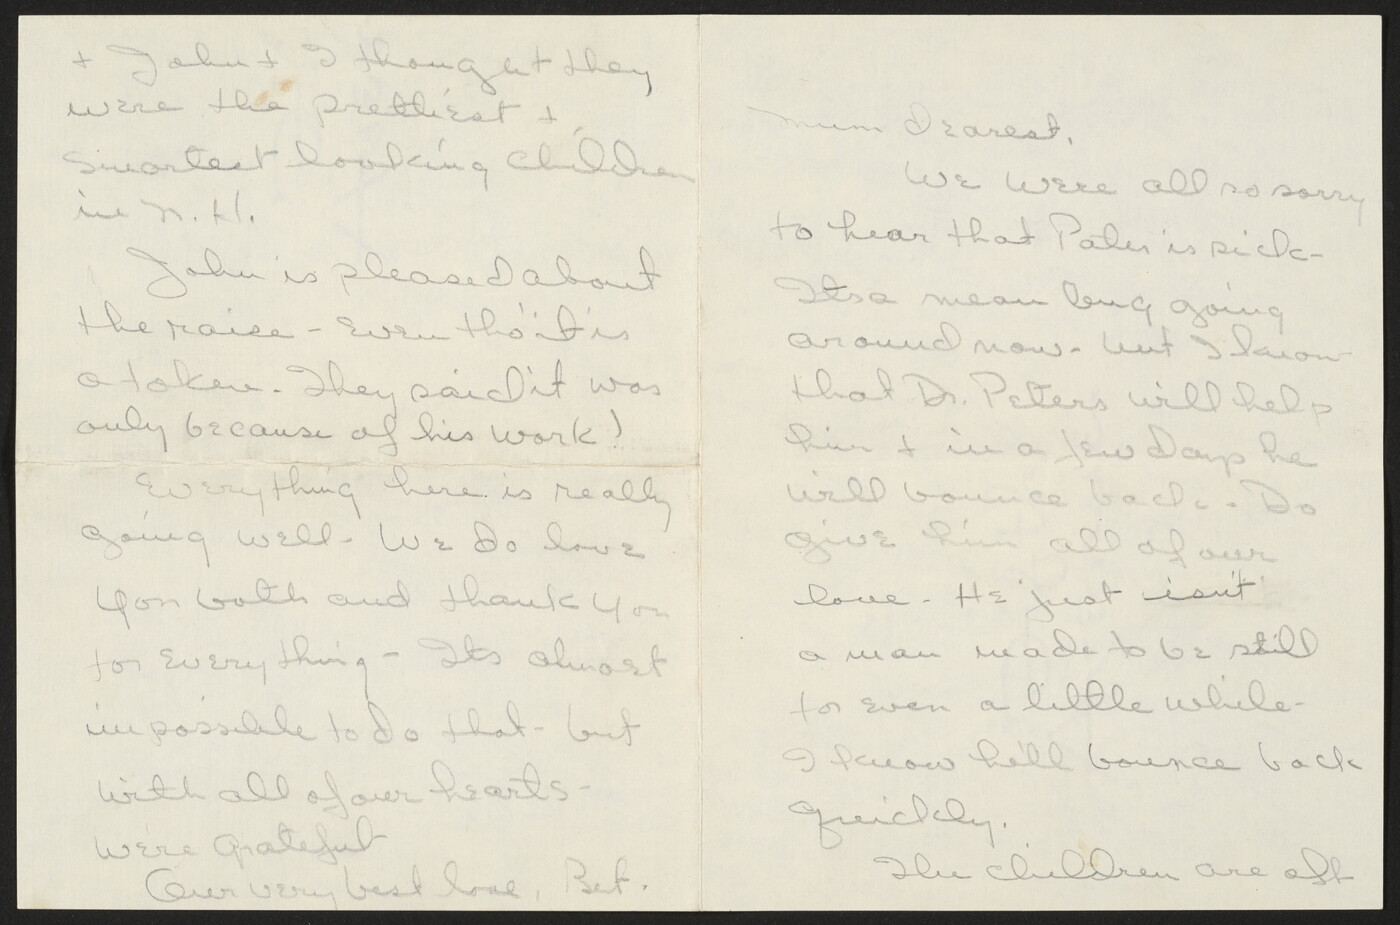 Mum dearest,
We were all so sorry
to hear that Pater is sick -
Its a mean bug going
around now - but I know
that Dr. Peters will help
him + in a few days he
will bounce back. Do
give him all of our
love - He just isn't
a man made to be still
for even a little while -
I know he'll bounce back
quickly.
The children are off
+ John + I thought they
were the prettiest +
smartest looking children
in N.H.
John is pleased about
the raise - even tho' it is
a token. They said it was
only because of his work!
Everything here is really
going well - We do love
you both and thank you
for everything - Its almost
impossible to do that - but
with all of our hearts -
we're grateful
Our very best love, Bet.